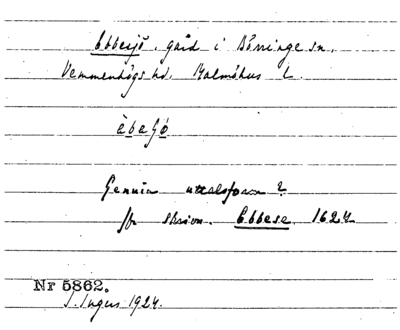 Ebbesjö, gård i Börringe sn,
Vemmenhögs hd. Malmöhus l.
Genuin uttalsform?
jfr skrivn. Ebbese 1624
Nr 5862.
I. Ingers 1924.